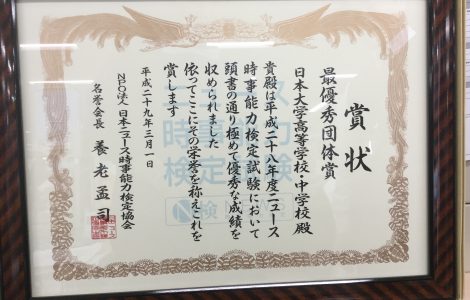 賞状
最優秀団体賞
日本大学高等学校・中学校殿
貴殿は平成二十八年度ニュース
時事能力検定試験において
頭書の通り極めて優秀な成績を
収められました
依ってここにその栄誉を称えこれを
賞します
平成二十九年三月一日
NPO法人 日本ニュース時事能力検定協会
名誉会長 養老孟司